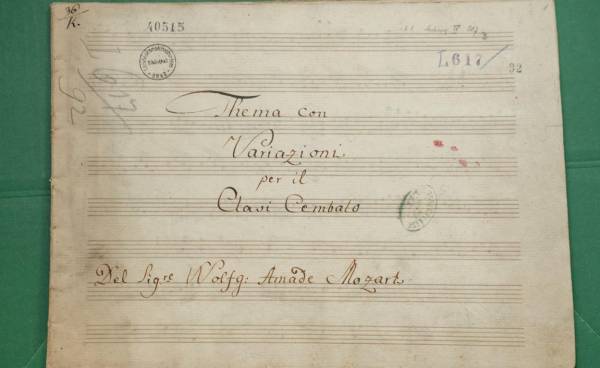 36/K.
40515
L617/
32
L 617/92
Thema con
Variazioni
per il
Clavi Cembalo
Del Sigre Wolfg: Amade Mozart